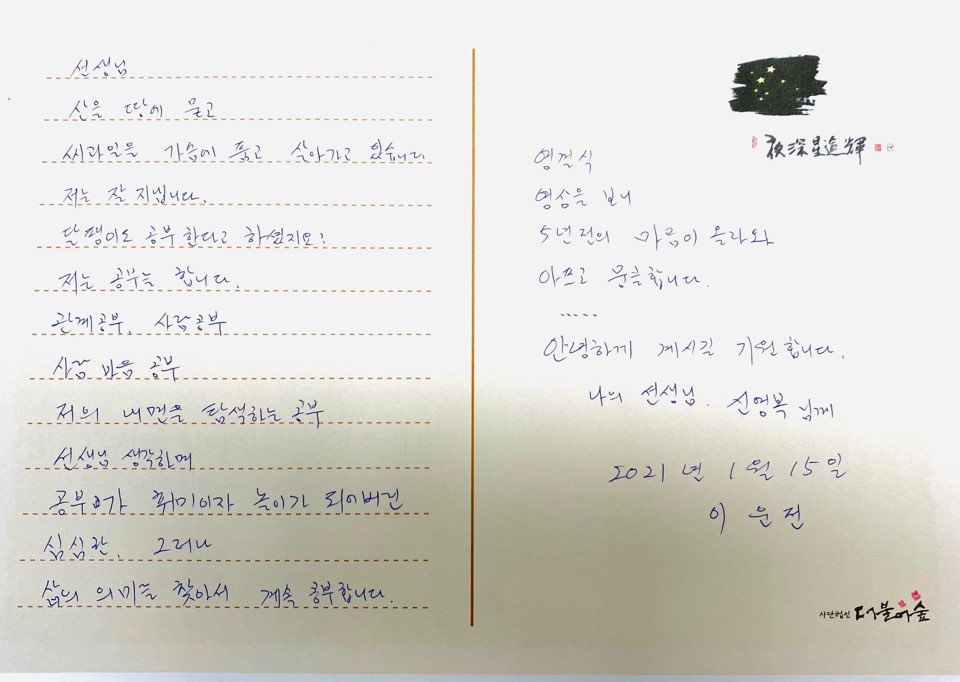 선생님
산을 땅에 묻고
씨과일을 가슴에 품고 살아가고 있습니다
저는 잘 지냅니다.
달팽이도 공부한다고 하셨지요!
저는 공부를 합니다.
관계공부, 사람공부
사람 마음 공부
저의 내면을 탐색하는 공부
선생님 생각하며
공부가 취미이자 놀이가 되어버린
심심한, 그러나
삶의 의미를 찾아서 계속 공부합니다.
夜深星逾輝
영결식
영상을 보니
5년전의 마음이 올라와
아프고 뭉클합니다.
.....
안녕하게 계시길 기원합니다.
나의 선생님. 신영복 님께
2021년 1월 15일
이 운전
사단법인 더불어숲